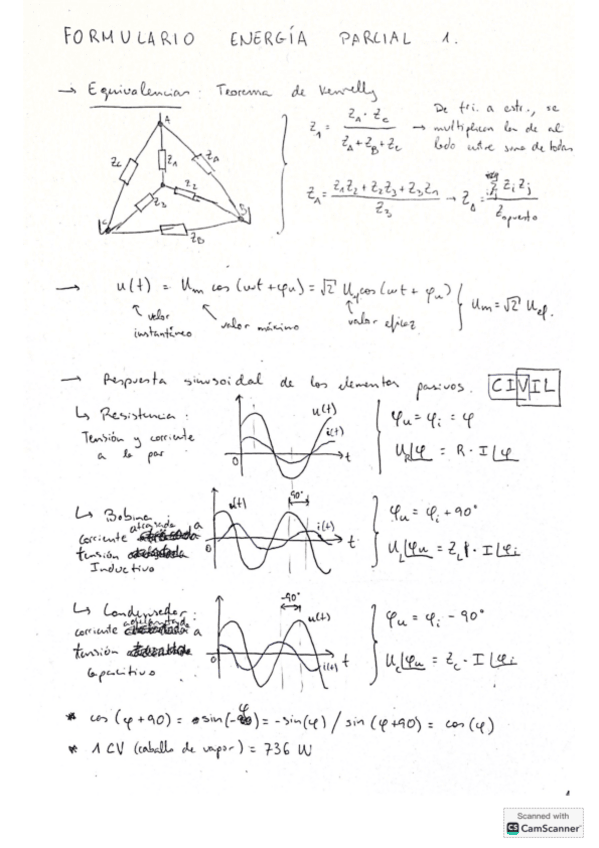 FORMULARIO ENERGÍA PARCIAL 1.
→ Equivalencias: Teorema de Kennelly
A
Z1
ZA
ZC
Z2
Z3
C
B
ZB
Z1 = ZA · ZC / ZA + ZB + ZC → De tri. a estr., se
multiplican los de al
lado entre suma de todas
ZA = Z1Z2 + Z2Z3 + Z3Z1 / Z3 → ZΔ = Σ Zi Zj / Zopuesto
→ u(t) = Um cos(ωt + φu) = √2 Uef cos(ωt + φu) } Um = √2 Uef.
valor
instantáneo
valor máximo
valor eficaz
→ Respuesta sinusoidal de los elementos pasivos. CIVIL
↳ Resistencia:
Tensión y corriente
a la par
u(t)
i(t)
0
t
φu = φi = φ
UR∠φ = R · I∠φ
↳ Bobina:
atrasada
corriente a
tensión
Inductivo
90°
u(t)
i(t)
0
t
φu = φi + 90°
UL∠φu = ZL · I∠φi
↳ Condensador:
adelantada
corriente a
tensión
Capacitivo
-90°
u(t)
i(t)
0
t
φu = φi - 90°
UC∠φu = ZC · I∠φi
* cos(φ+90) = sin(-φ) = -sin(φ) / sin(φ+90) = cos(φ)
* 1 CV (caballo de vapor) = 736 W
1
Scanned with
CS CamScanner